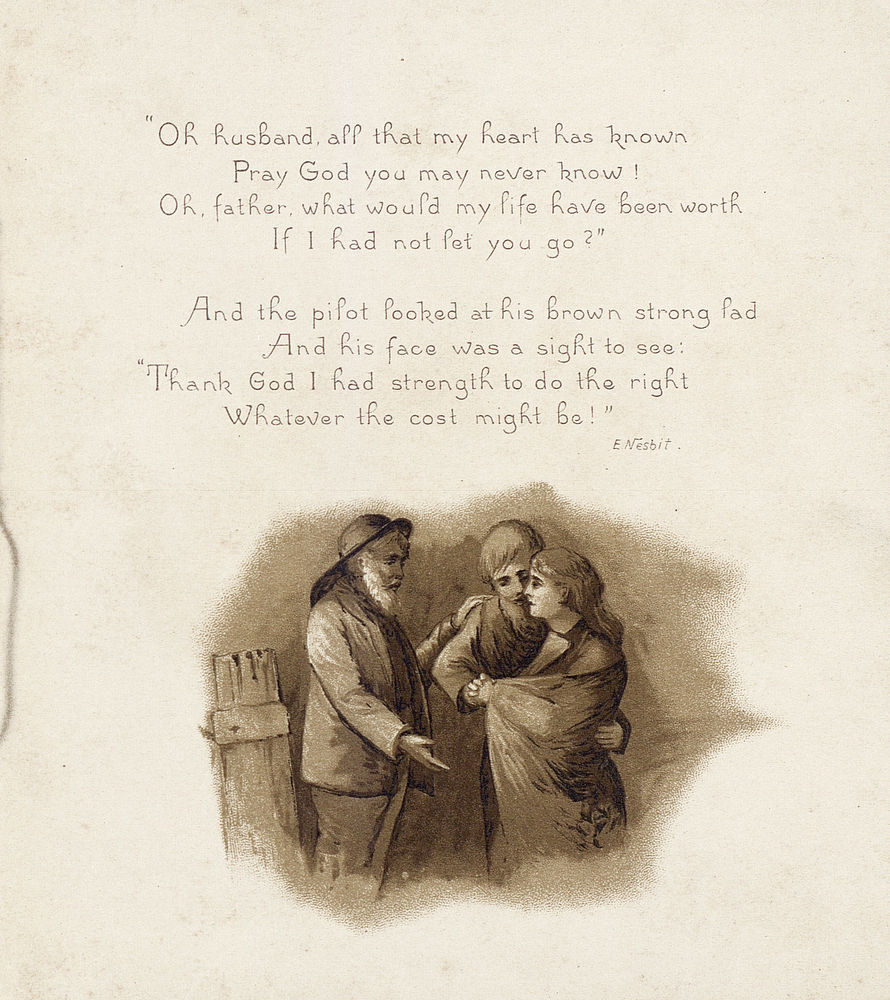 "Oh husband, all that my heart has known
Pray God you may never know!
Oh, father, what would my life have been worth
If I had not let you go?"
And the pilot looked at his brown strong lad
And his face was a sight to see:
"Thank God I had strength to do the right
Whatever the cost might be!"
E. Nesbit.